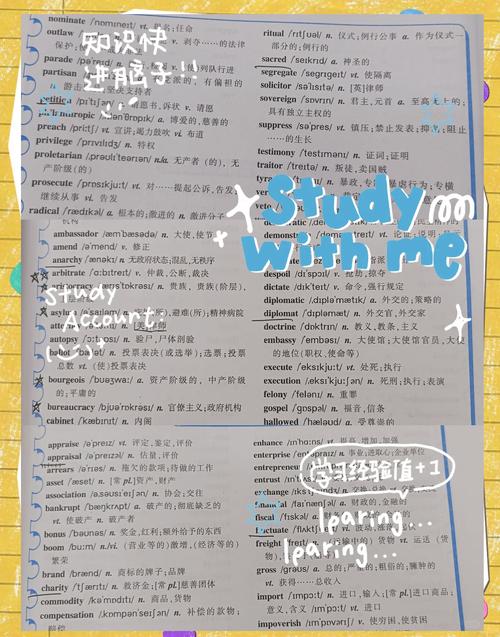 nominate /ˈnɒmɪneɪt/ vt. 提名;任命
outlaw
知识快
进脑子!!
护; vt. 剥夺……的法律
parade /pəˈ
partisan
支持者
petition /pɪˈtɪʃn/
philanthropic a. 博爱的,慈善的
preach /priːtʃ/ vt. 宣讲;竭力鼓吹 vi. 布道
privilege /ˈprɪvɪlɪdʒ/ n. 特权
proletarian /ˌprəʊlɪˈteəriən/ n./a. 无产者(的),无
产阶级(的)
prosecute /ˈprɒsɪkjuːt/ vt. 对……提起公诉,告发;
继续从事 vi. 告发
radical /ˈrædɪkəl/ a. 根本的;激进的 n. 激进分子
ritual /ˈrɪtʃuəl/ n. 仪式;例行公事 a. 作为仪式一
部分的;例行的
sacred /ˈseɪkrɪd/ a. 神圣的
segregate /ˈseɡrɪɡeɪt/ vt. 使隔离
solicitor /səˈlɪsɪtə/ n. [英]律师
sovereign /ˈsɒvrɪn/ n. 君主,元首 a. 至高无上的;
具有独立主权的
suppress /səˈpres/ vt. 镇压;禁止发表;抑制;阻止
……的生长
testimony /ˈtestɪməni/ n. 证词;证明
traitor /ˈtreɪtə/ n. 叛徒,卖国贼
n. 暴政,专制;暴虐行为;专横
Study
with me
ambassador /æmˈbæsədə/ n. 大使,使节
amend /əˈmend/ v. 修正
anarchy /ˈænəki/ n. 无政府状态;混乱,无秩序
arbitrate /ˈɑːbɪtreɪt/ v. 仲裁,公断,裁决
n. 贵族,贵族(阶层),
Study
Account:
避难(所);精神病院
autopsy /ˈɔːtɒpsi/ n. 验尸,尸体剖验
ballot /ˈbælət/ n. 投票表决(或选举);选票;投票
总数 vt. (使)投票表决
bourgeois /ˈbʊəʒwɑː/ a. 资产阶级的,中产阶级
的;平庸的
bureaucracy /bjʊəˈrɒkrəsi/ n. 官僚主义;政府机构
cabinet /ˈkæbɪnɪt/ n. 内阁
despoil /dɪˈspɔɪl/ vt. 抢劫,掠夺
dictate /dɪkˈteɪt/ v. 命令,强行规定
diplomatic /ˌdɪpləˈmætɪk/ a. 外交的;策略的
diplomat /ˈdɪpləmæt/ n. 外交官,外交家
doctrine /ˈdɒktrɪn/ n. 教义,教条,主义
embassy /ˈembəsi/ n. 大使馆;大使馆官员,大使
的地位(职权,使命等)
execute /ˈeksɪkjuːt/ vt. 处死;执行
execution /ˌeksɪˈkjuːʃən/ n. 死刑;执行;表演
felony /ˈfeləni/ n. 重罪
gospel /ˈɡɒspəl/ n. 福音,信条
hallowed /ˈhæləʊd/ a. 受尊崇的
appraise /əˈpreɪz/ vt. 评定,鉴定,评价
appraisal /əˈpreɪzəl/ n. 估量,评价
arrears /əˈrɪəs/ n. 拖欠的款项;待做的工作
asset /ˈæset/ n. [常pl.]资产,财产
association /əˌsəʊsɪˈeɪʃən/ n. 协会;交往
bankrupt /ˈbæŋkrʌpt/ a. 破产的;彻底缺乏的
vt. 使破产 n. 破产者
bonus /ˈbəʊnəs/ n. 奖金,红利;额外给予的东西
boom /buːm/ n./vi. (营业等的)激增,(经济等的)
繁荣
brand /brænd/ n. 商标的牌子;品牌
charity /ˈtʃærɪti/ n. 救济金;[常pl.]慈善团体
commodity /kəˈmɒdɪti/ n. 商品,货物
compensation /ˌkɒmpənˈseɪʃən/ n. 补偿的款物;
赔偿
enhance /ɪnˈhɑːns/ vt. 提高,增加,加强
enterprise n. 事业;进取心;企业单位
entrepreneur
学习经验值+1
entrust vt.
fiscal /ˈfɪskəl/ a.
loaring...
loaring...
freight /freɪt/ n. 货物 vt. 运送(货
物)
gross /ɡrəʊs/ a. 总的;粗俗的;臃肿的
vt. 获得……总收入
import /ɪmˈpɔːt/ v. 进口,输入;[常pl.]进口商品;
意义,含义 /ɪmˈpɔːt/ vt. 进口
impoverish /ɪmˈpɒvərɪʃ/ vt. 使穷困,使贫困